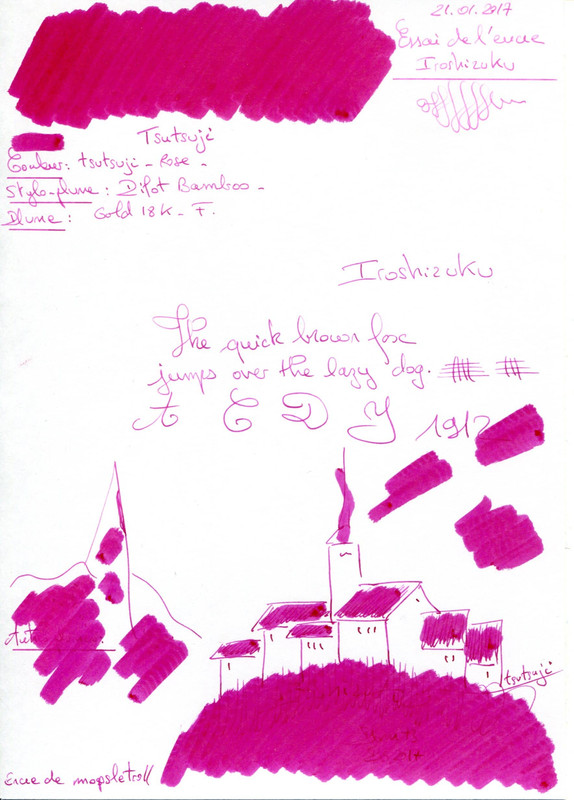 21.01.2017
Essai de l'encre
Iroshizuku
Tsutsuji
Couleur: tsutsuji - Rose -
Stylo-plume : Pilot Bamboo -
Plume : Gold 18K - F.
Iroshizuku
The quick brown fox
jumps over the lazy dog.
A E D Y 1912
tsutsuji
Encre de mopsletroll